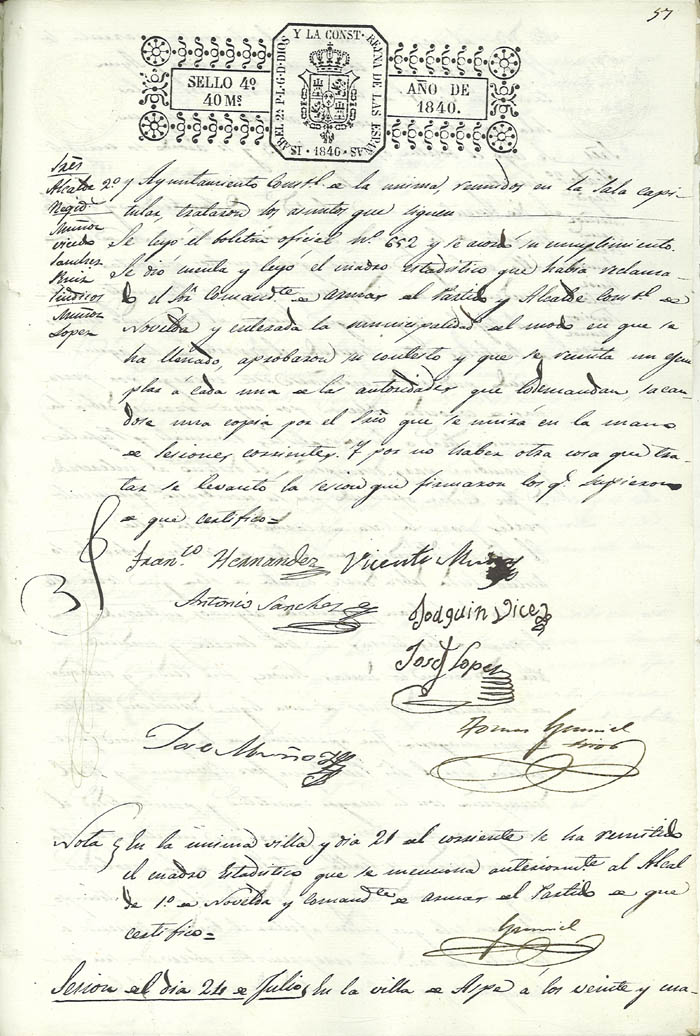 57
ISABEL 2ª P.L.G.D.DIOS Y LA CONST. REYNA DE LAS ESPAÑAS
· 1840 ·
SELLO 4º
40 Ms
AÑO DE
1840.
Sres
Alcalde 2º
Regid.
Muñoz
Vicedo
Sanchez
Ruiz
Sindicos
Muñoz
Lopez
y Ayuntamiento Constl. de la misma, reunidos en la Sala capi-
tular, trataron los asuntos que siguen
Se leyó el boletin oficial Nº. 652 y se acordó su cumplimiento.
Se dió cuenta y leyó el cuadro Estadistico que habia reclama-
do el Sr. Comandte. de armas del Partido y Alcalde Constl. de
Novelda y enterada la municipalidad del modo en que se
ha llenado, aprobaron su contesto y que se remita un ejem
plar á cada una de las autoridades que lo demandan sacan
dose una copia por el Srio que se unirá en la mano
de sesiones corrientes. Y por no haber otra cosa que tra-
tar se levantó la sesion que firmaron los q. supieron
de que certifico=
Franco. Hernandez Vicente Muñoz
Antonio Sanchez
Joaquin Vicedo
Josef Lopez
Tomas
José Muñoz
Nota En la misma villa y dia 21 del corriente se ha remitido
el cuadro Estadistico que se menciona anteriormte. al Alcal
de 1º. de Novelda y Comandte. de armas del Partido de que
certifico=
Sesion del dia 24 de Julio, En la villa de Aspe á los veinte y cua-